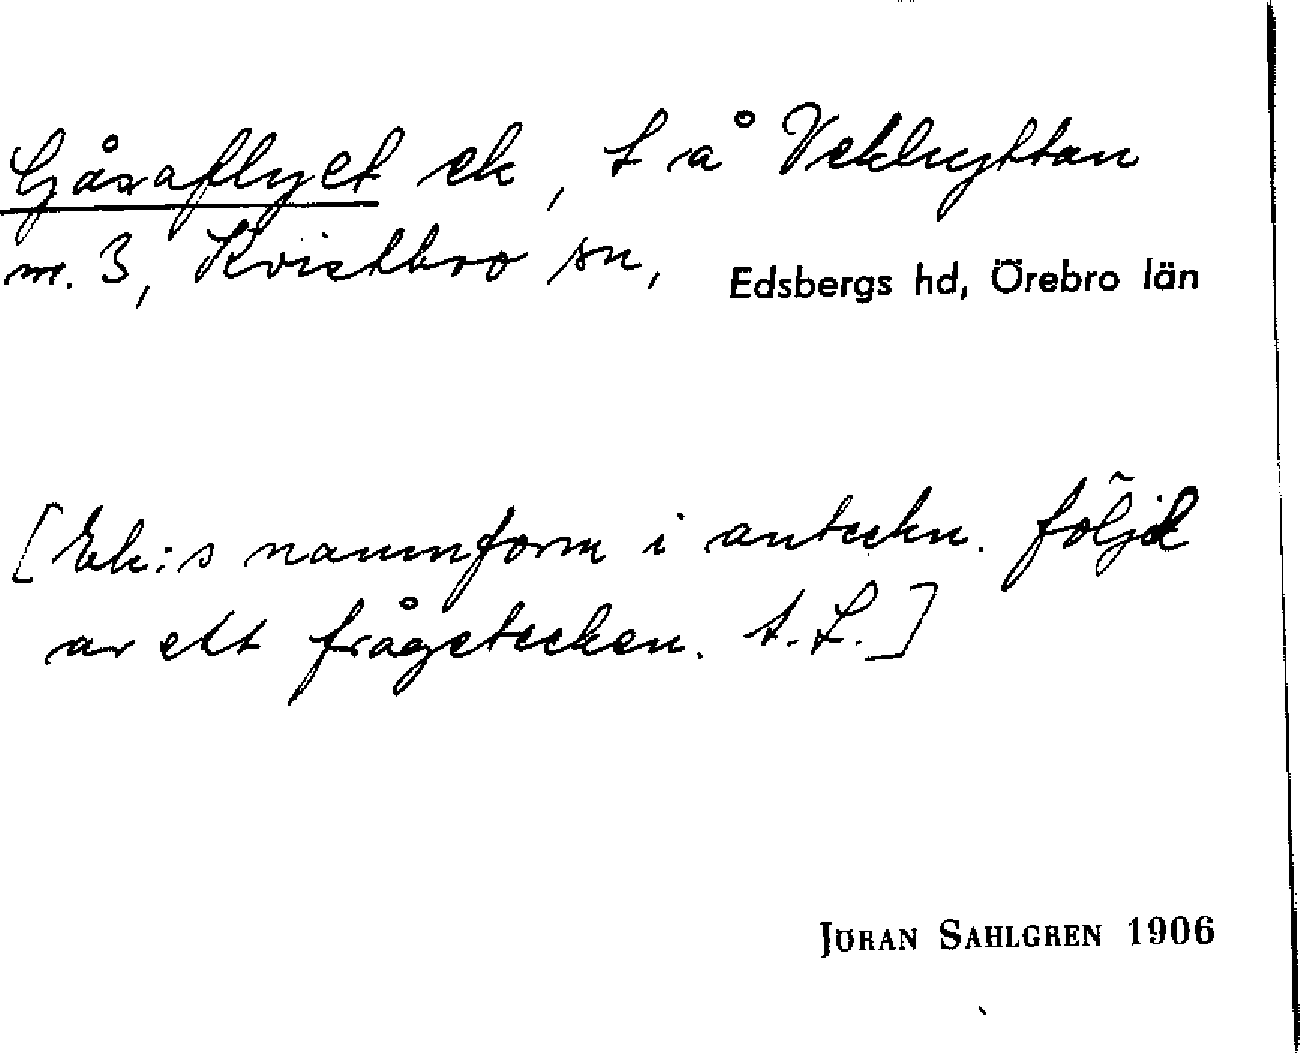 Gåsaflyet ek, t å Vekhyttan
nr. 3, Kvistbro sn, Edsbergs hd, Örebro län
[Ek:s namnform i anteckn. följd
av ett frågetecken. t.L.]
JÖRAN SAHLGREN 1906